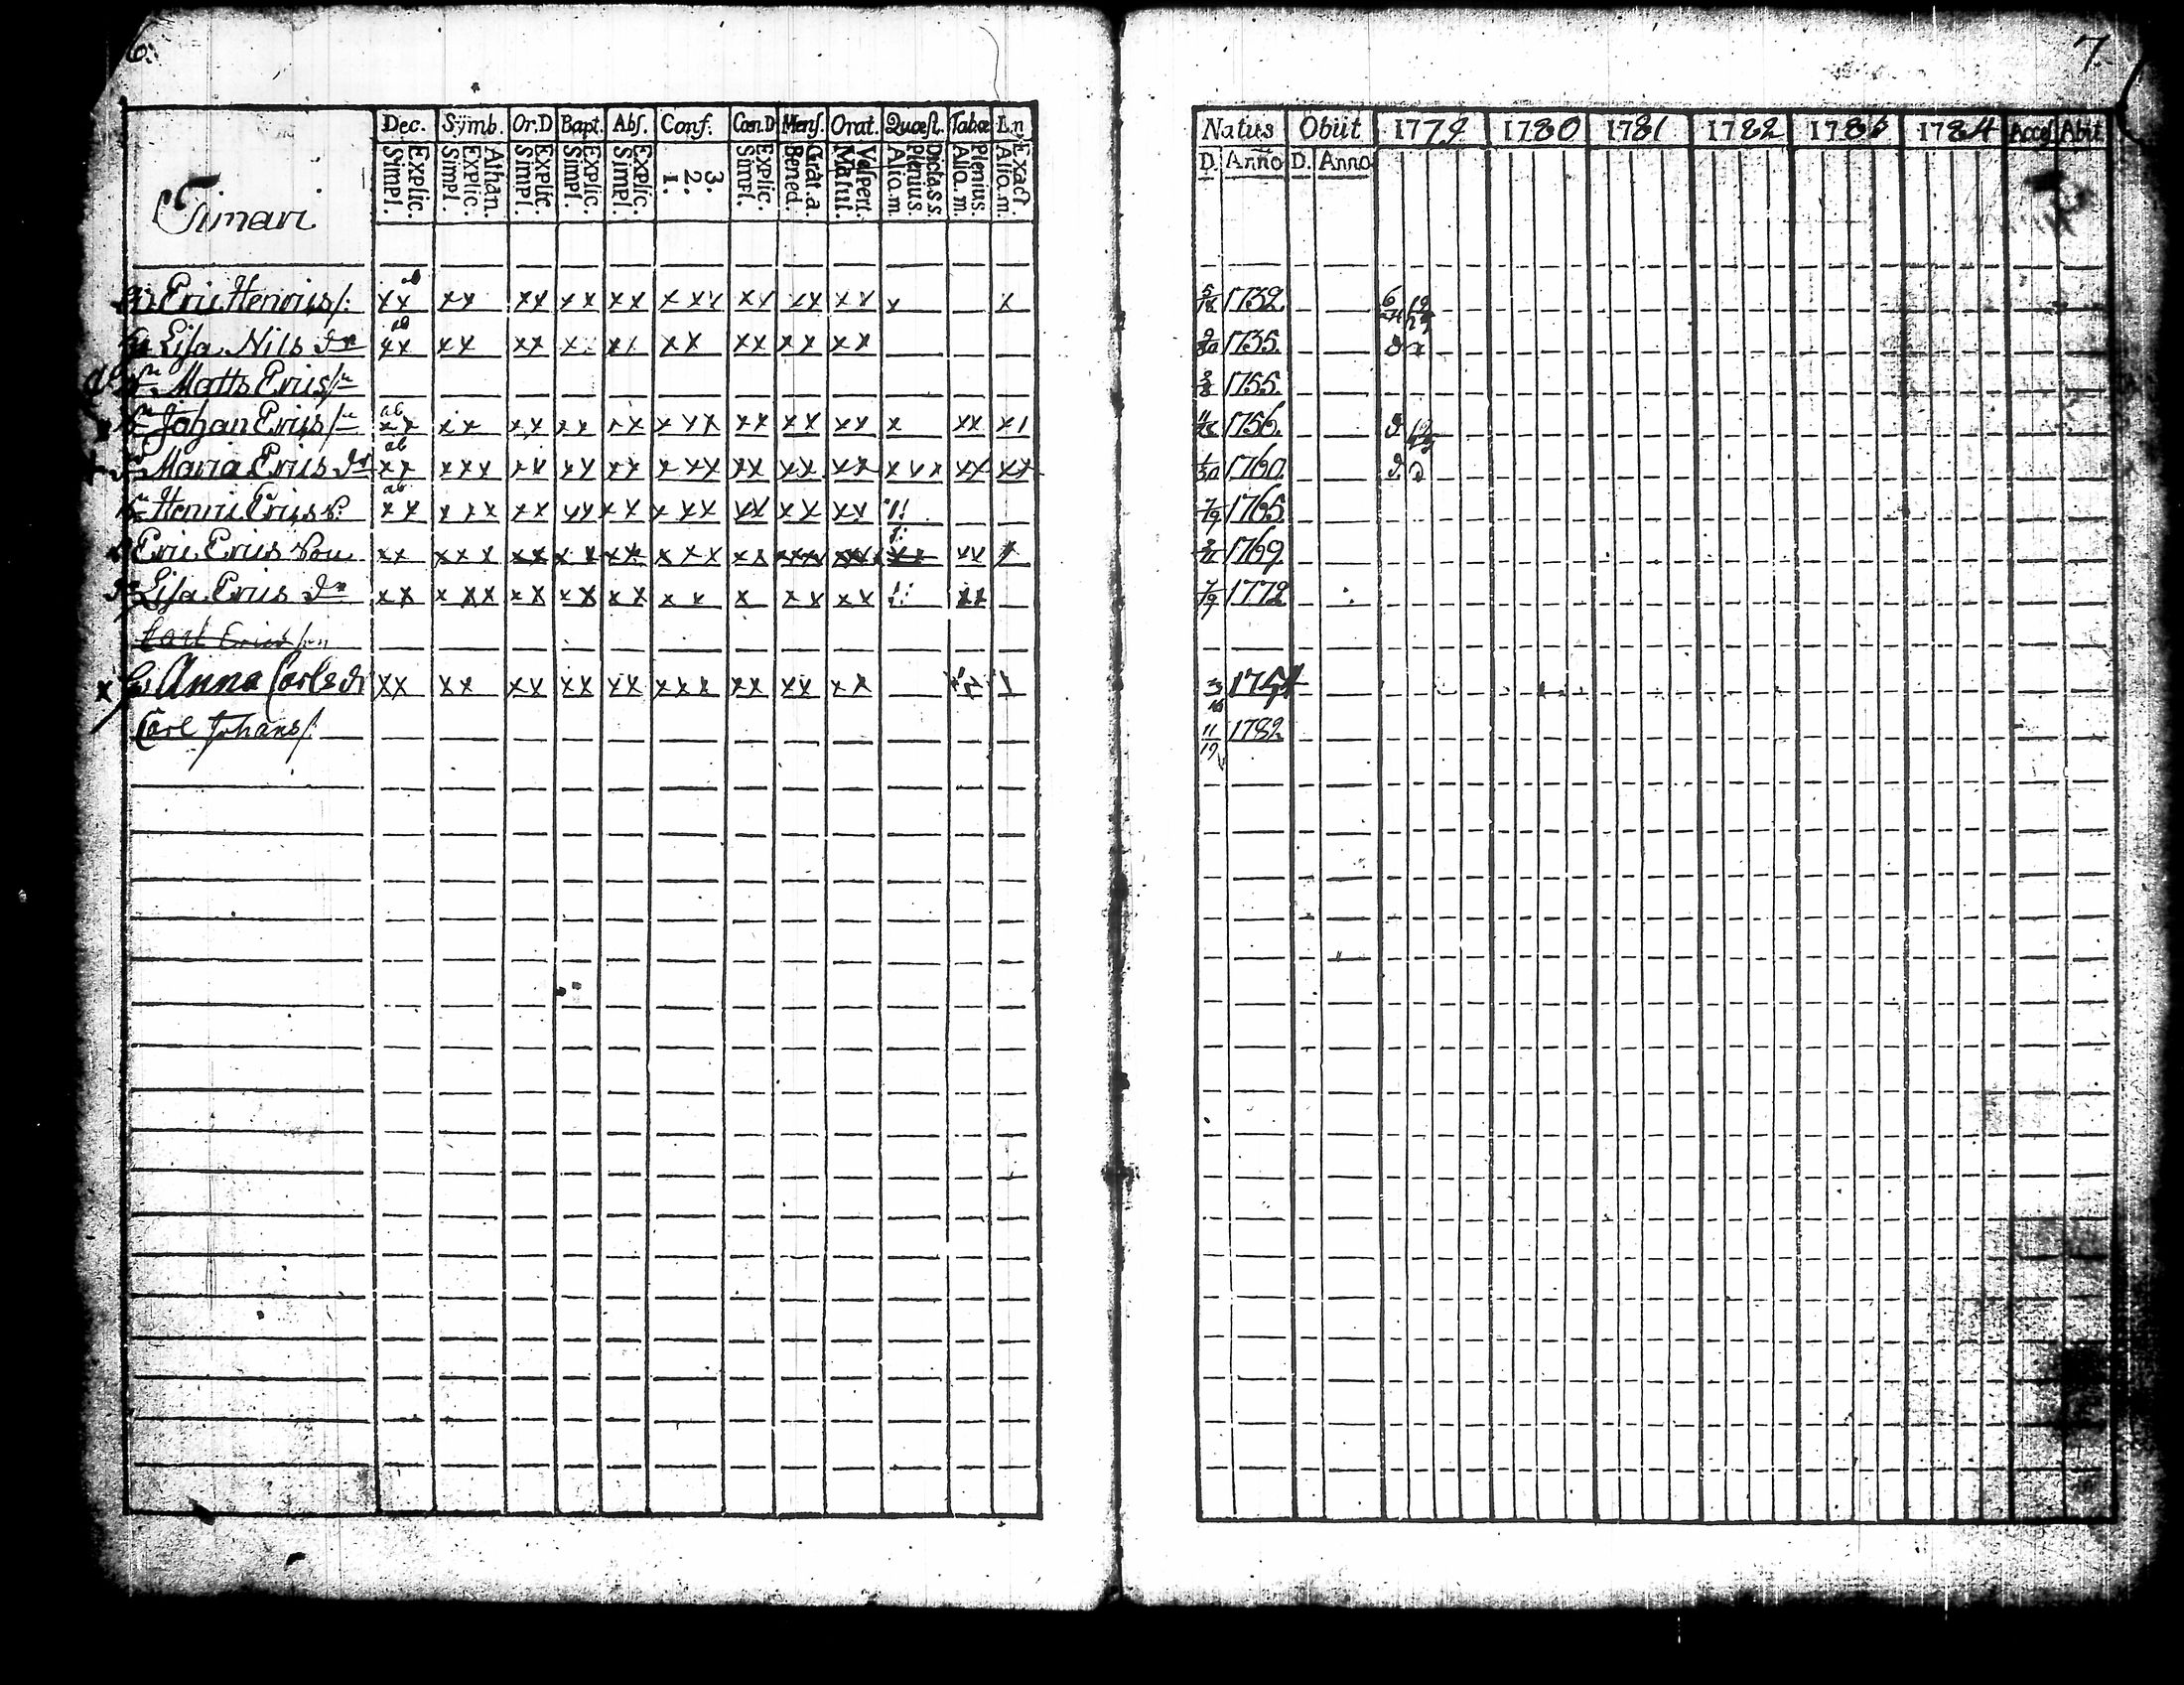 6.
Dec. Symb. Or.D Bapt. Abs. Conf. Cœn.D Mens. Orat. Quæst. Tabœ L.n
Explic. Simpl. Athan. Explic. Simpl. Explic. Simpl. Explic. Simpl. Explic. Simpl. 3. 2. 1. Explic. Simpl. Grat.a. Bened. Vespert. Matut. Dicta.s.s. Plenius. Aliq.m. Plenius. Aliq.m. Exact. Aliq.m.
Timari
Eric Henrics s: xx xx xx xx xx xxx xx xx xx x x
Lisa Nils dr xx xx xx xx xx xx xx xx
Matts Erics s
Johan Erics s ab xx xx xx xx xx xxx xx xx xx x xx
Maria Erics dr ab xx xxx xx xx xx xxx xx xx xx xxx xx xx
Henric Erics s. ab xx xxx xx xx xx xxx xx xx xx
Eric Erics son xx xxx xx xx xx xxx xx
Lisa Erics dr xx xxx xx xx xx xx x xx xx xx
Carl Erics son
Anna Carls dr xx xx xx xx xx xxx xx xx xx
Carl Johans s:
7.
Natus Obiit 1779 1780 1781 1782 1783 1784 Acces Abit
D. Anno D. Anno
1732.
1735.
1755.
1756.
1760.
7/9 1765.
1769.
7/9 1772
1754
11/19 1782.